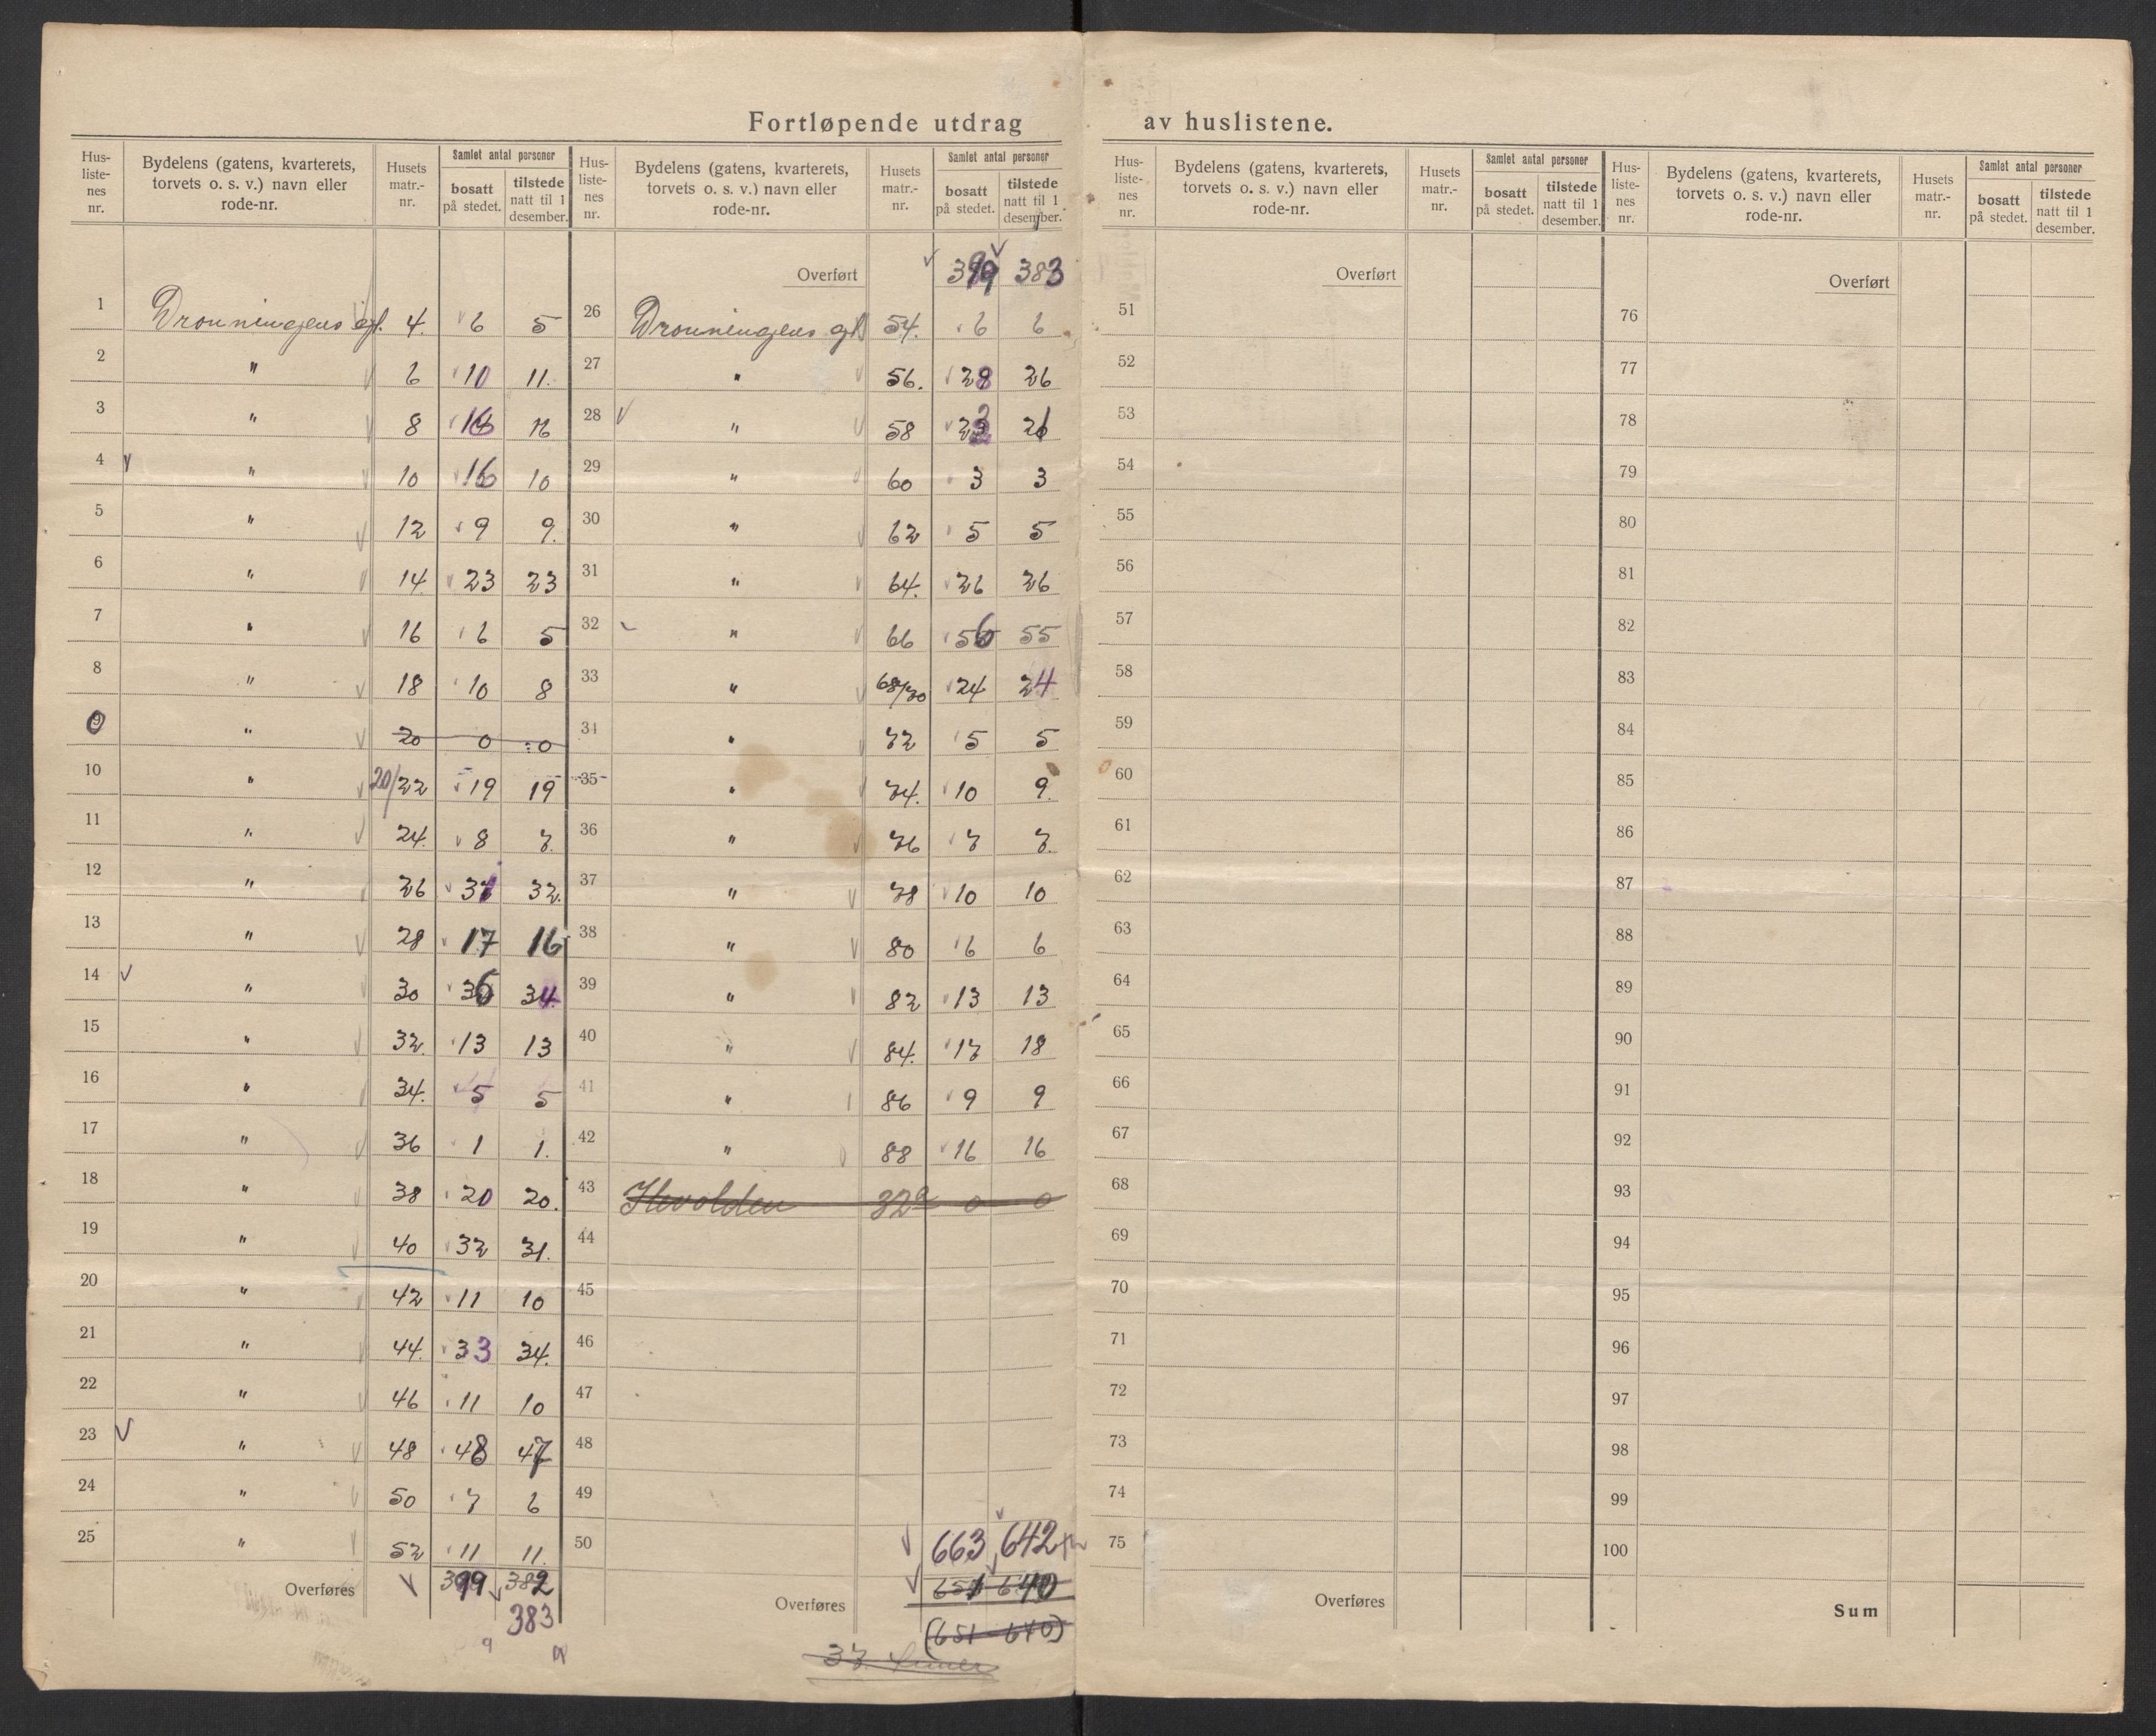 Fortløpende utdrag av huslistene.
Hus-liste-nes nr. | Bydelens (gatens, kvarterets, torvets o. s. v.) navn eller rode-nr. | Husets matr.-nr. | Samlet antal personer | bosatt på stedet. | tilstede natt til 1 desember.
1 Dronningens gt. 4. 6 5
2 " 6 10 11.
3 " 8 16
4 " 10 16 10
5 " 12 9 9.
6 " 14. 23 23
7 " 16 6 5
8 " 18 10 8
9 " 20 0 0
10 " 20/22 19 19
11 " 24. 8 7.
12 " 26 31 32.
13 " 28 17 16
14 " 30 36 34.
15 " 32. 13 13
16 " 34. 5 5
17 " 36 1 1.
18 " 38 20 20.
19 " 40 32 31.
20 " 42 11 10
21 " 44. 33 34.
22 " 46 11 10
23 " 48 48 47
24 " 50 7 6
25 " 52 11 11.
Overføres 399 382
383
Hus-liste-nes nr. | Bydelens (gatens, kvarterets, torvets o. s. v.) navn eller rode-nr. | Husets matr.-nr. | Samlet antal personer | bosatt på stedet. | tilstede natt til 1 desember.
Overført 399 383
26 Dronningens gt 54. 6 6
27 " 56. 28 26
28 " 58 21
29 " 60 3 3
30 " 62 5 5
31 " 64. 26 26
32 " 66 56 55
33 " 68/70 24 24
34 " 72 5 5
35 " 74. 10 9.
36 " 76 7 7.
37 " 78 10 10
38 " 80 6 6
39 " 82 13 13
40 " 84. 17 18
41 " 86 9 9
42 " 88 16 16
43 Ilevolden 32a 0 0
44
45
46
47
48
49
50
663 642
651 640
Overføres
(651 - 640)
Hus-liste-nes nr. | Bydelens (gatens, kvarterets, torvets o. s. v.) navn eller rode-nr. | Husets matr.-nr. | Samlet antal personer | bosatt på stedet. | tilstede natt til 1 desember.
Overført
51
52
53
54
55
56
57
58
59
60
61
62
63
64
65
66
67
68
69
70
71
72
73
74
75
Overføres
Hus-liste-nes nr. | Bydelens (gatens, kvarterets, torvets o. s. v.) navn eller rode-nr. | Husets matr.-nr. | Samlet antal personer | bosatt på stedet. | tilstede natt til 1 desember.
Overført
76
77
78
79
80
81
82
83
84
85
86
87
88
89
90
91
92
93
94
95
96
97
98
99
100
Sum